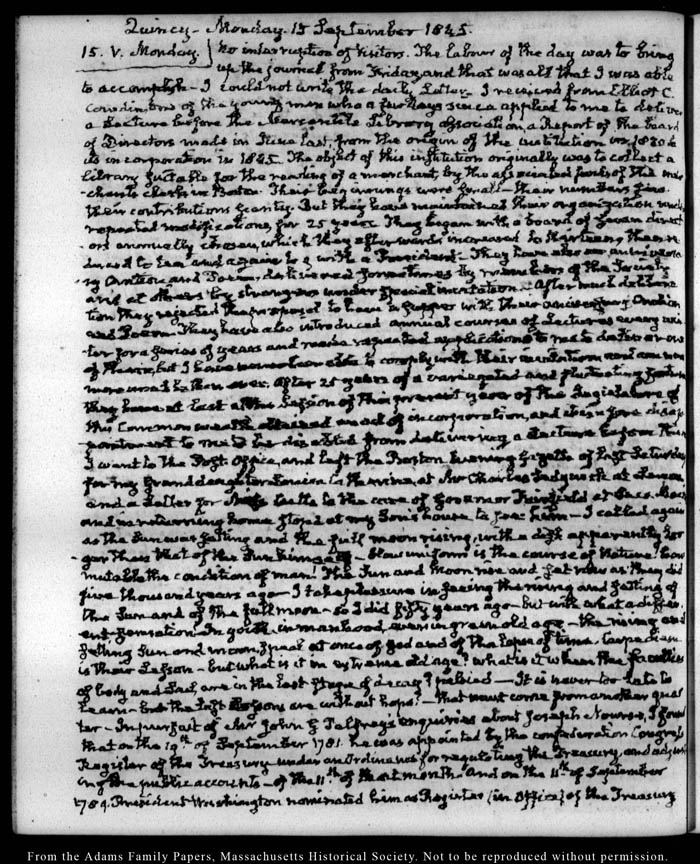 Quincy - Monday 15 September 1845.
15. V. Monday. No interruption of Visitors. The labour of the day was to bring
up the journal from Friday, and that was all that I was able
to accomplish - I could not write the daily Letter. I received from Elliot C.
Cowdin, one of the young men who a few days since applied to me to deliver
a Lecture before the Mercantile Library Association, a Report of the board
of Directors made in June last, from the origin of the institution in 1820 to
its incorporation in 1845. The object of this institution originally was to collect a
library suitable for the reading of a merchant, by the associated funds of the mer
chants clerks in Boston. Their beginnings were small - their numbers few
their contributions scanty. But they have maintained their organization with
repeated modifications, for 25 years. They began with a board of seven direct
ors annually chosen, which they afterwards increased to thirteen, then re
duced to ten and again to 9 with a President. They have also an anniversa
ry Oration and Poem, delivered sometimes by members of the Society
and at others by strangers under special invitation. After much delibera
tion they rejected the proposal to have a supper with their anniversary Oration
and Poem. They have also introduced annual courses of Lectures every win
ter for a series of years and made repeated applications to me to deliver one
of them, but I have never been able to comply with their invitation and am now
more unable than ever. After 25 years of a variegated and fluctuating fortune
they have at last at the Session of this present year of the Legislature of
this Commonwealth obtained an act of incorporation, and it is a sore disap
pointment to me to be disabled from delivering a Lecture before them
I went to the Post-Office, and left the Boston Evening Gazette of last Saturday
for my Granddaughter Louisa Catherine, at Mr Charles Sedgwick at Lenox
and a Letter for to the care of Governor Fairfield at Saco, Maine
and in returning home stop'd at my Son's house to see him - I called again
as the Sun was setting and the full moon rising, with a disk apparently lar
ger than that of the Sun himself - How uniform is the course of Nature! how
mutable the condition of man! The Sun and Moon rise and set now as they did
five thousand years ago - I take pleasure in seeing the rising and setting of
the Sun and of the full moon - so I did fifty years ago - but with what a differ
ent sensation. In youth, in manhood, even in green old age - the rising and
setting sun and moon, speak at once of God and of the lapse of time. Carpe diem
is their Lesson - but what is it in extreme old age? What is it when the faculties
of body and Soul, are in the last stage of decay? - It is never too late to
learn - but the last Lessons are without hope! - that must come from another quar
ter - In pursuit of Mr John G Palfrey's enquiries about Joseph Nourse, I found
that on the 19th of September 1781. he was appointed by the confederation Congress
Register of the Treasury under an Ordinance for regulating the Treasury, and adjust
ing the public accounts - of the 11th of that month. And on the 11th of September
1789. President Washington nominated him as Register (in Office) of the Treasury
From the Adams Family Papers, Massachusetts Historical Society. Not to be reproduced without permission.